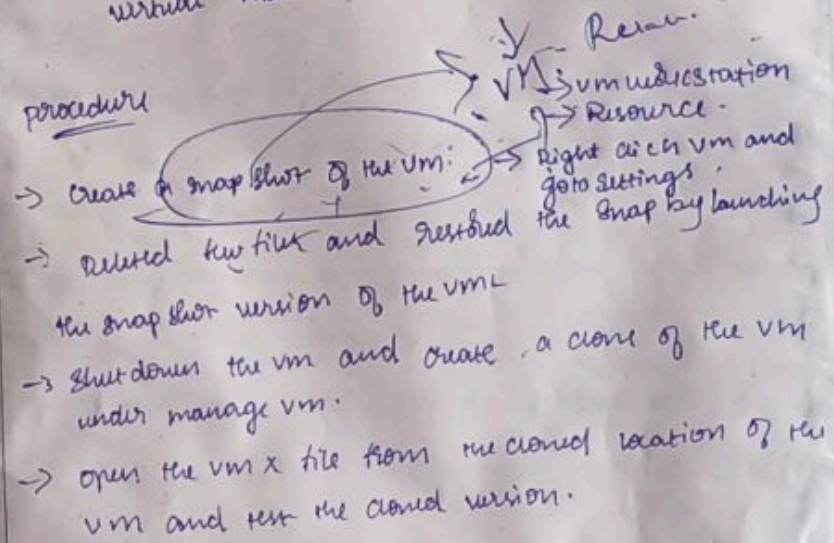 virtual
VM - 
procedure
→ vm workstation
→ Resource.
→ create a snap shot of the vm:
→ Right click vm and
goto settings.
→ Deleted few files and restored the snap by launching
the snap shot version of the vm
→ Shut down the vm and create a clone of the vm
under manage vm.
→ open the vm x file from the cloned location of the
vm and test the cloned version.